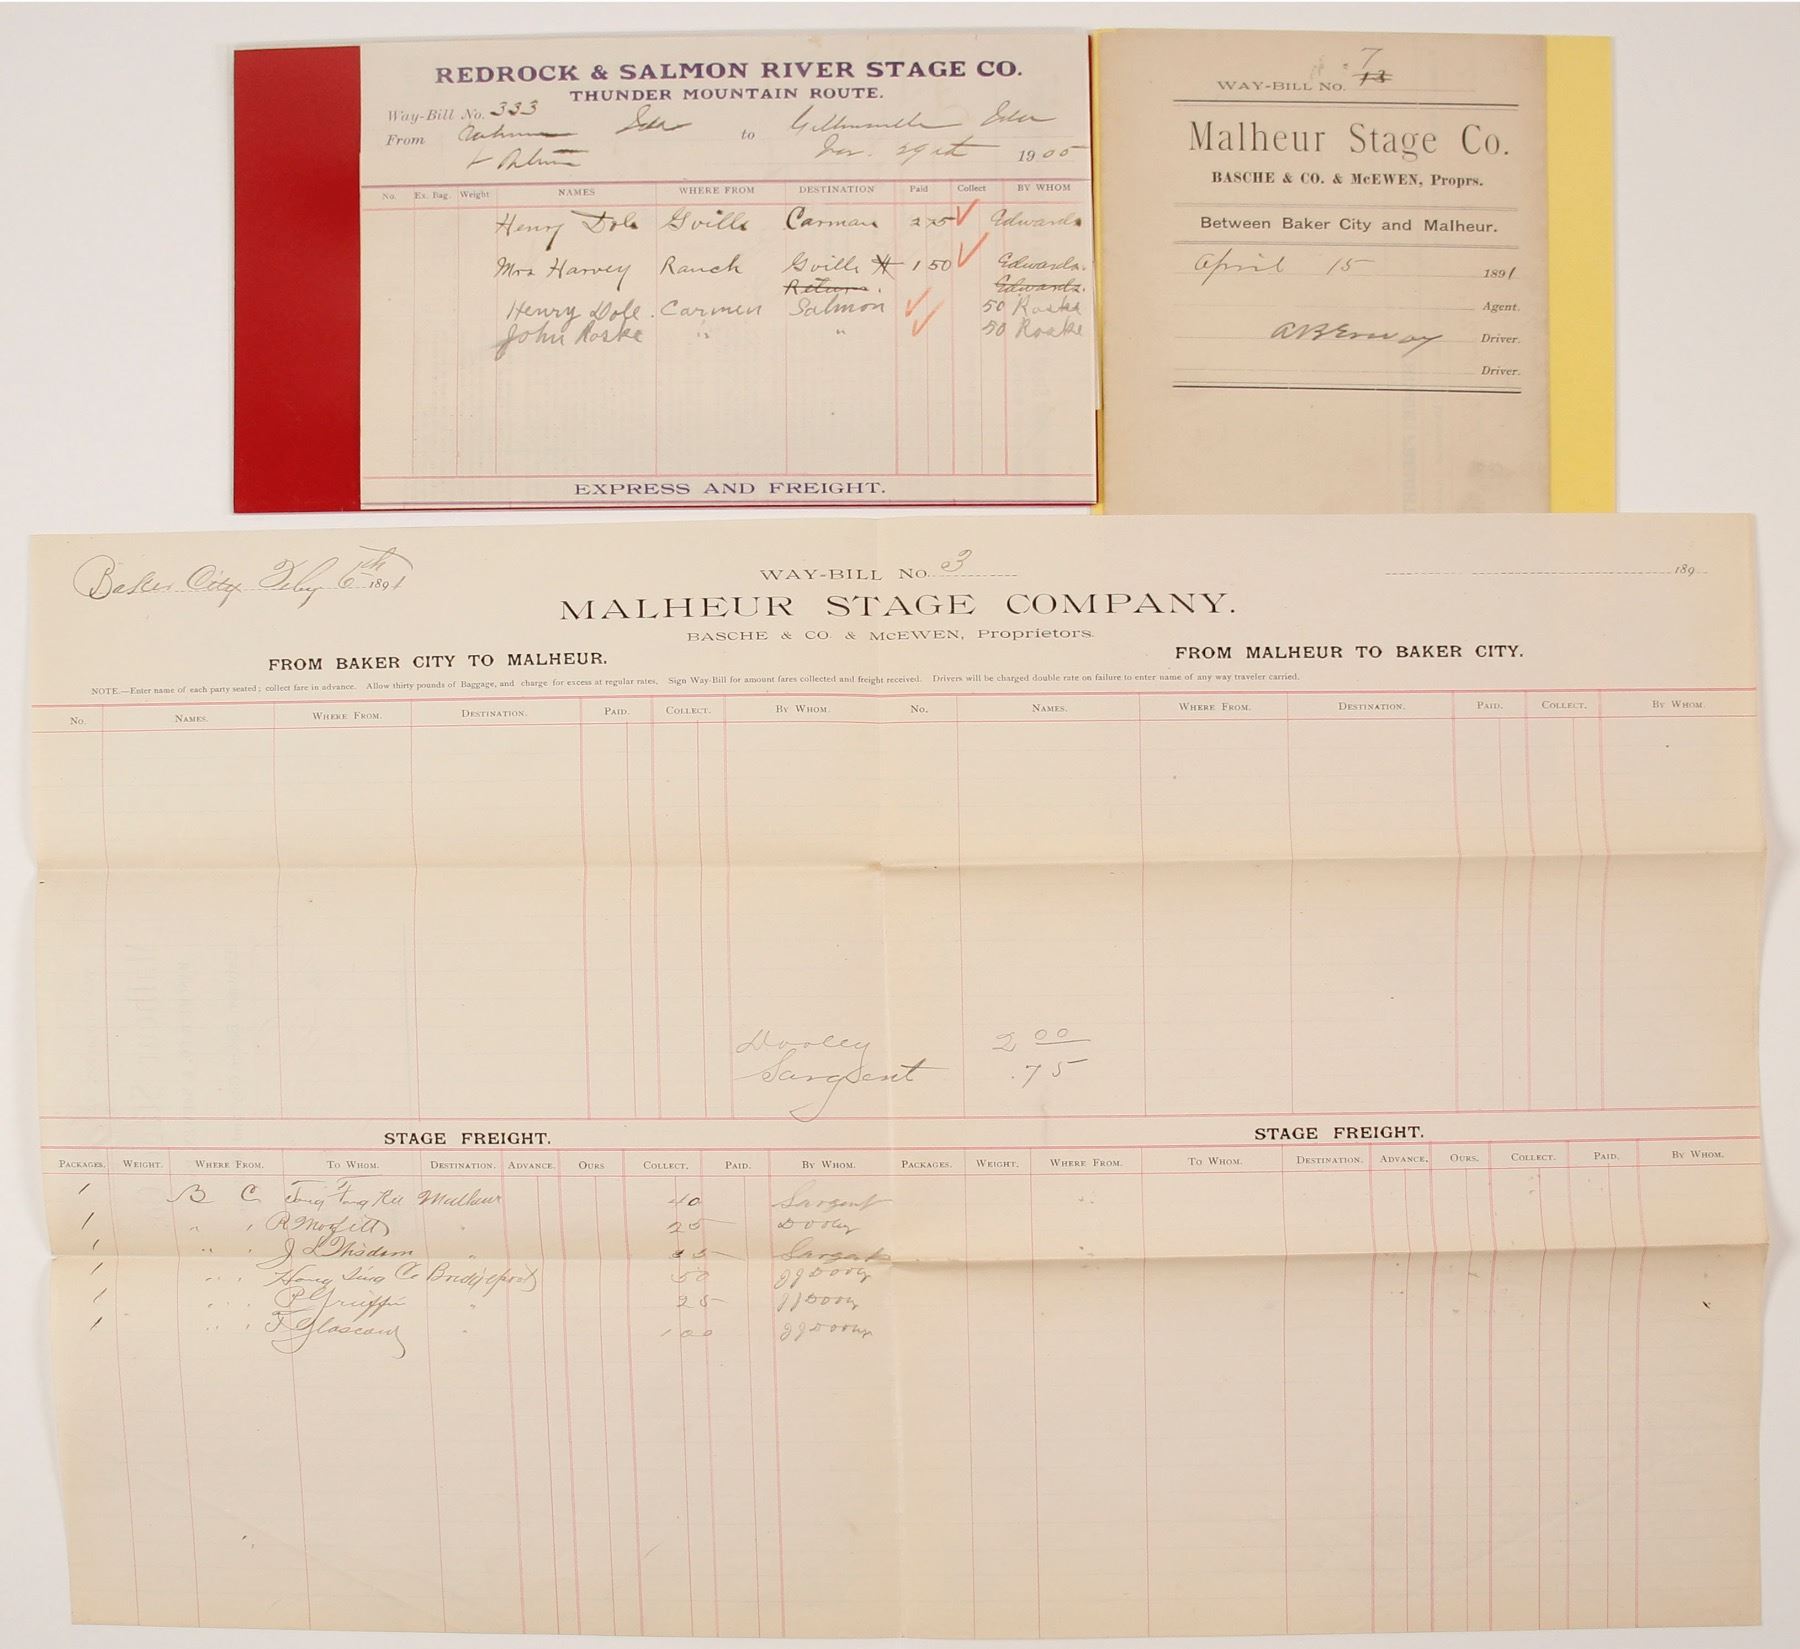 REDROCK & SALMON RIVER STAGE CO.
THUNDER MOUNTAIN ROUTE.
Way-Bill No. 333
From to
29th 1905
No. Ex. Bag. Weight NAMES WHERE FROM DESTINATION Paid Collect BY WHOM
Henry Dole Gville Carman 2 25 Edwards
Mrs Harvey Ranch Gville 1 50 Edwards.
Return. Edwards.
Henry Dole. Carmen Salmon 50 Roske
John Roske " " 50 Roske
EXPRESS AND FREIGHT.
7
WAY-BILL NO. 13
Malheur Stage Co.
BASCHE & CO. & McEWEN, Proprs.
Between Baker City and Malheur.
April 15 1891
Agent.
Driver.
Driver.
Baker City Feby 6th 1891
WAY-BILL NO. 3
189
MALHEUR STAGE COMPANY.
BASCHE & CO. & McEWEN, Proprietors.
FROM BAKER CITY TO MALHEUR. FROM MALHEUR TO BAKER CITY.
NOTE.—Enter name of each party seated; collect fare in advance. Allow thirty pounds of Baggage, and charge for excess at regular rates. Sign Way-Bill for amount fares collected and freight received. Drivers will be charged double rate on failure to enter name of any way traveler carried.
No. NAMES. WHERE FROM. DESTINATION. PAID. COLLECT. BY WHOM. No. NAMES. WHERE FROM. DESTINATION. PAID. COLLECT. BY WHOM.
Dooley 2 00
Sargent .75
STAGE FREIGHT. STAGE FREIGHT.
PACKAGES. WEIGHT. WHERE FROM. TO WHOM. DESTINATION. ADVANCE. OURS COLLECT. PAID. BY WHOM. PACKAGES. WEIGHT. WHERE FROM. TO WHOM. DESTINATION. ADVANCE. OURS. COLLECT. PAID. BY WHOM.
1 B C Malheur 40 Sargent
1 " " R Moffitt " 25 Dooly
1 " " J L Wisdom " Sargent
1 " " Hong Sing Co Bridgeport 50 JJ Dooly
1 " " P Griffin " 25 JJ Dooly
1 " " F Glascow " 1 00 JJ Dooly